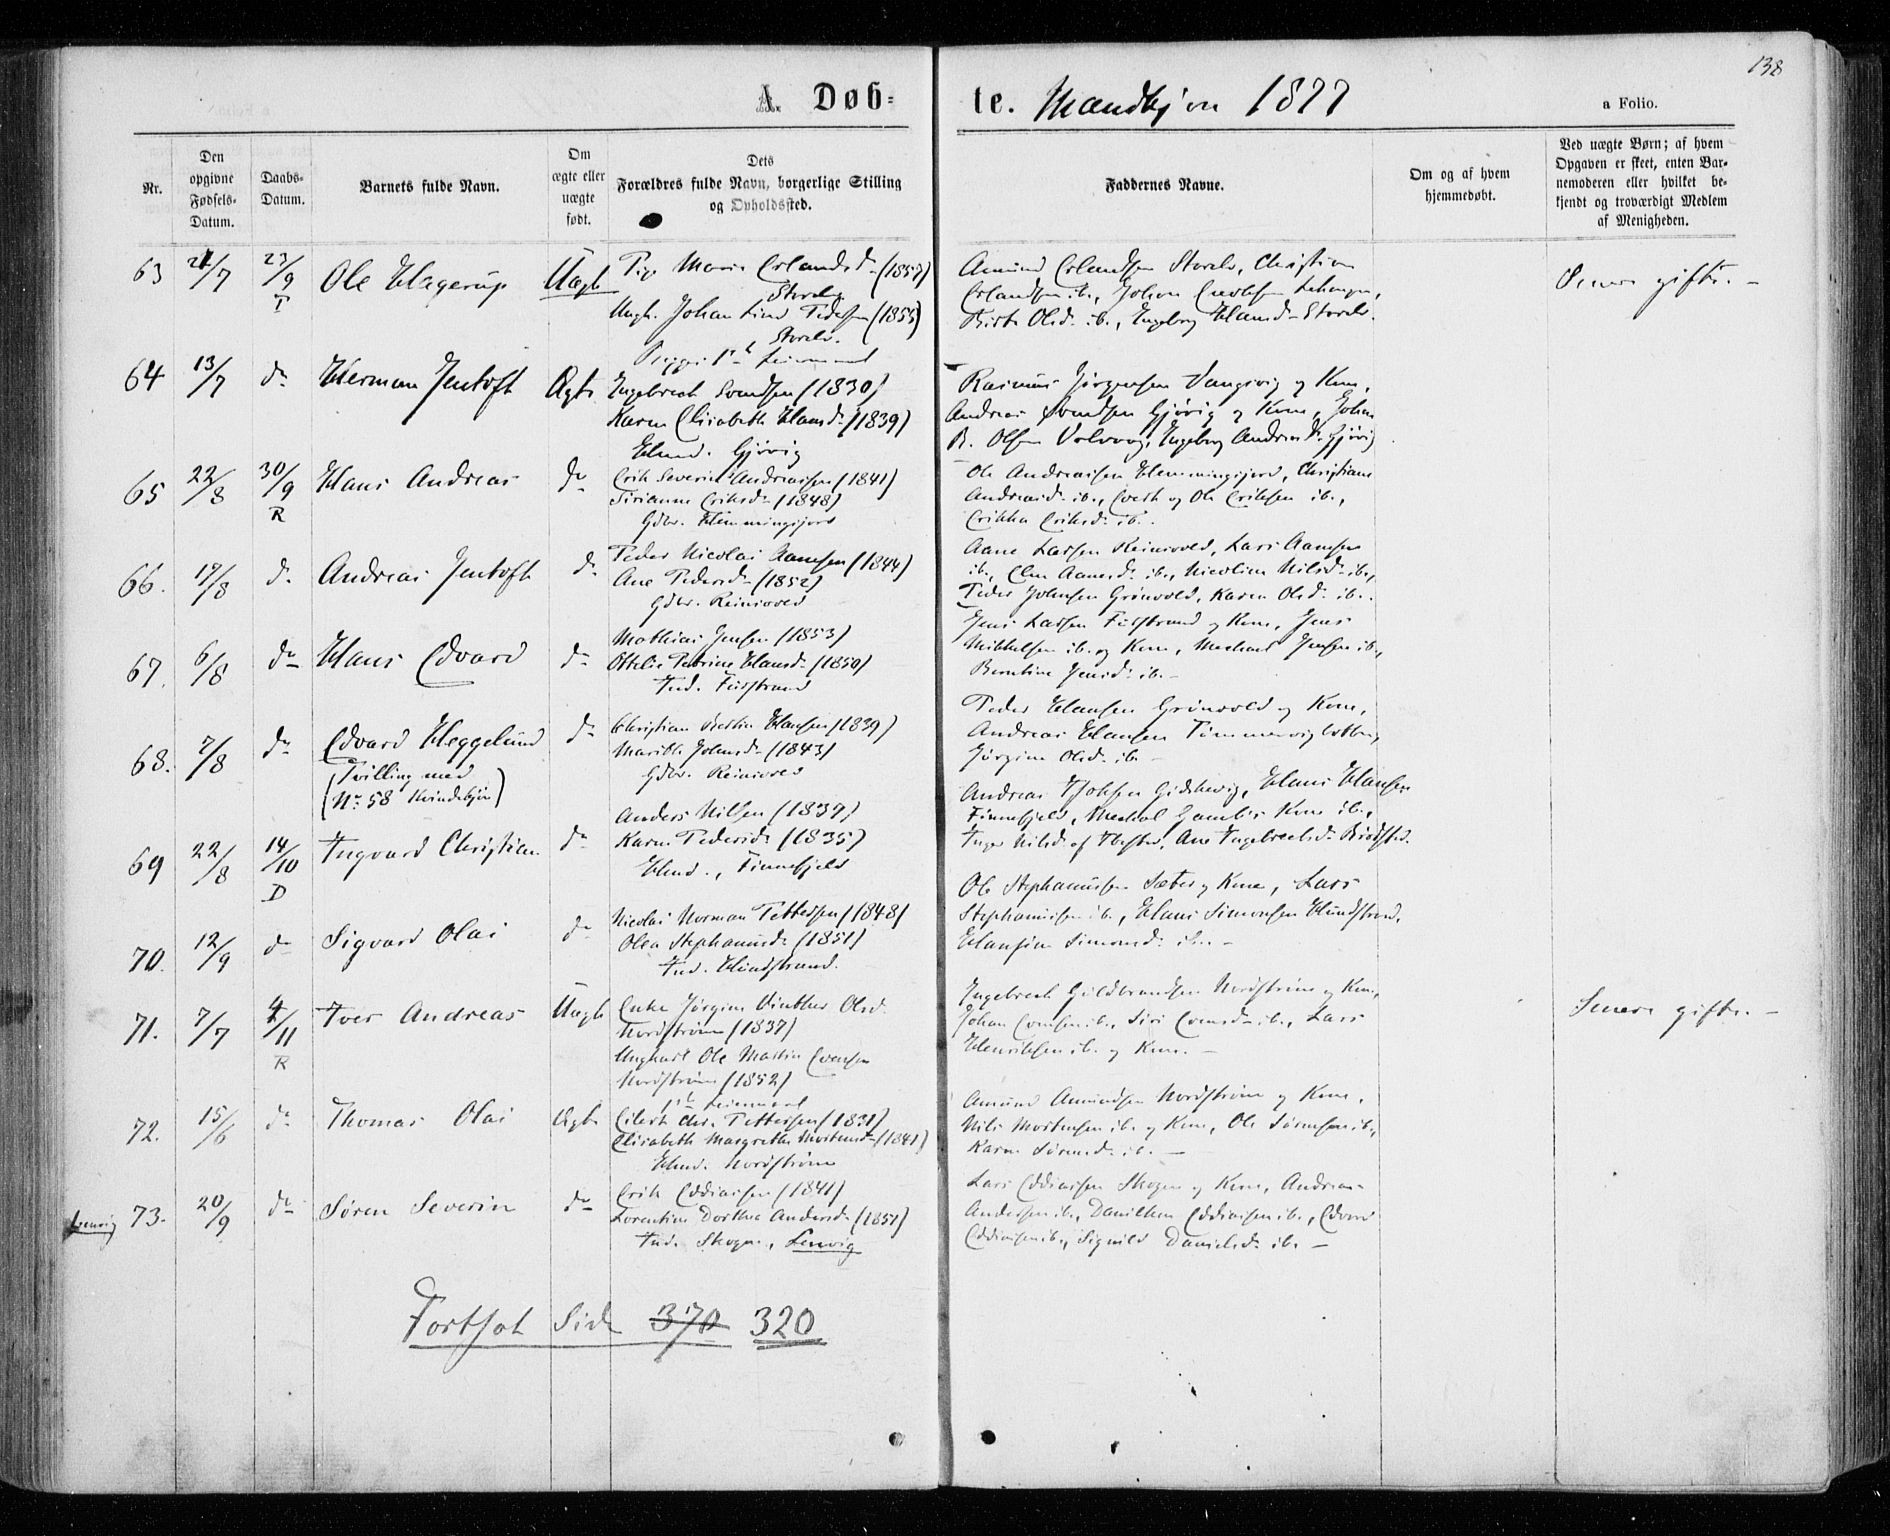 138
A. Døb-
te. Mandkjøn 1877
a Folio.
Nr.
Den
opgivne
Fødsels-
Datum.
Daabs-
Datum.
Barnets fulde Navn.
Om
ægte eller
uægte
født.
Dets
Forældres fulde Navn, borgerlige Stilling
og Opholdssted.
Faddernes Navne.
Om og af hvem
hjemmedøbt.
Ved uægte Børn; af hvem
Opgaven er skeet, enten Bar-
nemoderen eller hvilket be-
kjendt og troværdigt Medlem
af Menigheden.
63 21/7 23/9 T Ole Hagerup Uægt
Pige Maria Erlandsd. (1857)
Storelv
Ungk. Johan Lind Pedersen (1855)
Storelv.
Amund Erlandsen Storelv, Christian
Erlandsen ib., Johan
Birte Olsd. ib., Ingeborg Hansd. Storelv.
Senere gifte. -
64 13/7 do Herman Jentoft Ægte
Engebrecht Svendsen (1830)
Karen Elisabeth Hansd. (1839)
Hmd. Gjøvig
Rasmus Jørgensen Vangsvig og Kone,
Andreas Svendsen Gjøvig og Kone, Johan
B. Olsen Valvaag, Ingeborg Andreasd. Gjøvig
65 22/8 30/9 R Hans Andreas do
Erik Severin Andreassen (1841)
Sirianna Eriksd. (1848)
Gdbr. Hemmingsjord
Ole Andreassen Hemmingsjord, Christiane
Andreasd. ib., Evert og Ole Eriksen ib.,
Erikka Eriksd. ib.
66. 19/8 do Andreas Jentoft do
Peder Nicolai Aanesen (1844)
Ane Pedersd. (1852)
Gdbr. Reinsvold
Aane Larsen Reinsvold, Lars Aanesen
ib., Elen Aanesd. ib., Nicoline Nilsd. ib.,
Peder Johnsen Grönvold, Karen Olsd. ib.
67. 6/8 do Hans Edvard do
Mathias Jensen (1853)
Ottelie Petrine Hansd. (1850)
Ind. Finstrand
Jens Larsen Finstrand og Kone, Jens
Mikkelsen ib. og Kone, Mechael Jensen ib.,
Berntine Jensd. ib. -
68. 7/8 do Edvard Heggelund
(Tvilling med
No 58 Kvindekjøn) do
Christian Bertin Hansen (1839)
Marith Johnsd. (1843)
Gdbr. Reinsvold
Peder Hansen Grönvold og Kone,
Andreas Hansen
Jørgine Olsd. ib. -
69 22/8 14/10 D Ingvard Christian do
Anders Nilsen (1837)
Karen Pedersd. (1835)
Hmd., Finnefjeld
Andreas Hans Hansen
Finnefjeld, Kone ib.,
Inger Nilsd. af Ibestad, Ane Engebrechtsd.
70. 12/9 do Sigvard Olai do
Nicolai Norman Pettersen (1848)
Olea Stephansd. (1851)
Ind. Hundstrand.
Ole Stephanussen Sæter og Kone, Lars
Stephanussen ib., Hans Simonsen Hundstrand,
Hansine Simonsd. ib. -
71. 7/7 4/11 R Iver Andreas Uægt
Enke Jørgine Vinther Olsd.
Nordstrøm (1837)
Ungkarl Ole Martin Evensen
Nordstrøm (1852)
1ste Leiermaal
Engebrecht Guldbrandsen Nordstrøm og Kone,
Johan Evensen ib., Siri Evensd. ib., Lars
Henriksen ib. og Kone. -
Senere gifte. -
72. 15/6 do Thomas Olai Ægte
Eilert Chr. Pettersen (1831)
Elisabeth Margrethe Mortensd. (1841)
Hmd. Nordstrøm
Amund Amundsen Nordstrøm og Kone,
Nils Mortensen ib. og Kone, Ole Sørensen ib.,
Karen Sørensd. ib. -
Lenvig 73. 20/9 do Søren Severin do
Erik Eddiassen (1841)
Lorentine Dorthea Andersd. (1851)
Ind. Skogen, Lenvig
Lars Eddiassen Skogen og Kone, Andreas
Andersen ib., Eddiassen ib., Edvard
Eddiassen ib., Signild Danielsd. ib. -
Fortsat Side 370 320